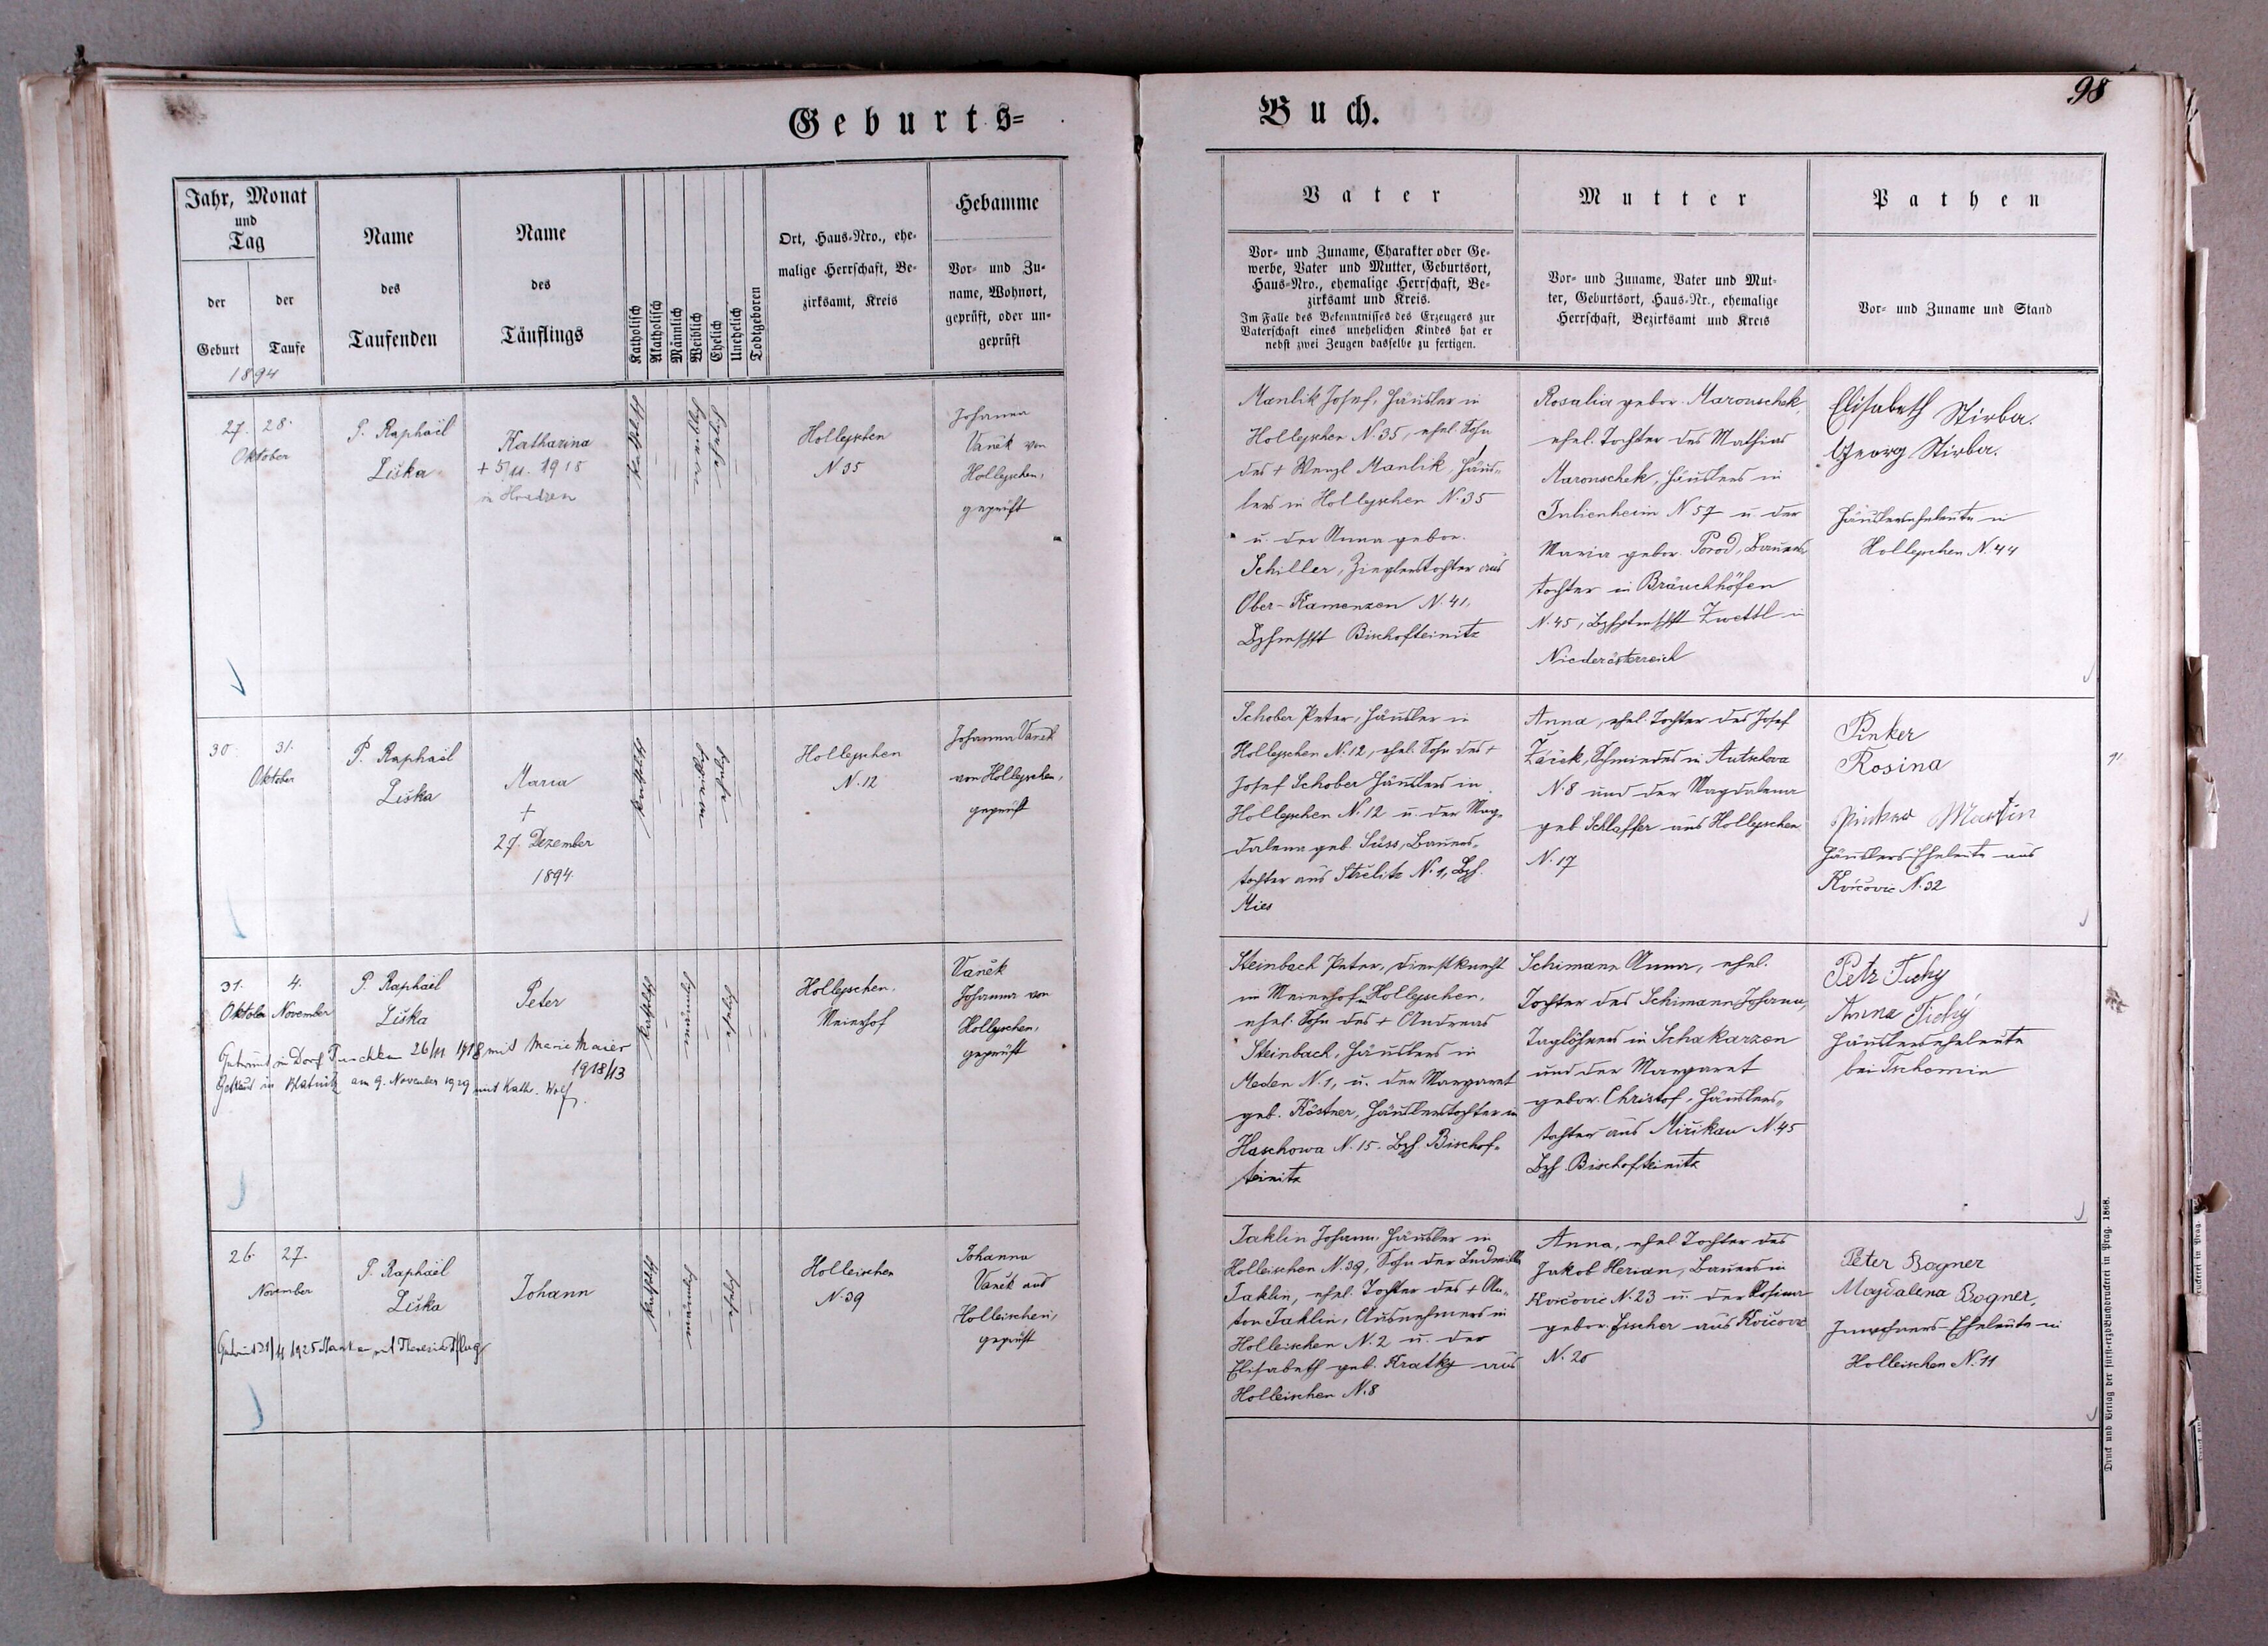 Geburts=
Jahr, Monat
und
Tag
der
Geburt
der
Taufe
1894
Name
des
Taufenden
Name
des
Täuflings
Katholisch
Akatholisch
Männlich
Weiblich
Ehelich
Unehelich
Todtgeboren
Ort, Haus-Nro., ehe-
malige Herrschaft, Be-
zirksamt, Kreis
Hebamme
Vor- und Zu-
name, Wohnort,
geprüft, oder un-
geprüft
27. 28.
Oktober
P. Raphaël
Liška
Katharina
+ 5/11. 1918
in
Katholisch
ehelich
Holleyschen
N 35
Johanna
Vaněk von
Holleyschen,
geprüft
30. 31.
Oktober
P. Raphaël
Liška
Maria
+
27. Dezember
1894.
Katholisch
ehelich
Holleyschen
N. 12
Johanna Vaněk
von Holleyschen,
geprüft
31. 4.
Oktober November
P. Raphaël
Liška
Peter
Katholisch
ehelich
Holleyschen.
Meierhof
Vaněk
Johanna von
Holleyschen,
geprüft
Getraut in Dorf Tuschkau 26/11 1918 mit Marie Maier
1918/13
Getraut in Blatnitz am 9. November 1929 mit Kath. Wolf
26. 27.
November
P. Raphaël
Liška
Johann
Katholisch
ehelich
Holleischen
N. 39
Johanna
Vaněk aus
Holleischen,
geprüft
Getraut 21/11 1925 mit Theresia Pflug
Buch.
98
Vater
Vor- und Zuname, Charakter oder Ge-
werbe, Vater und Mutter, Geburtsort,
Haus-Nro., ehemalige Herrschaft, Be-
zirksamt und Kreis.
Im Falle des Bekenntnisses des Erzeugers zur
Vaterschaft eines unehelichen Kindes hat er
nebst zwei Zeugen dasselbe zu fertigen.
Mutter
Vor- und Zuname, Vater und Mut-
ter, Geburtsort, Haus-Nr., ehemalige
Herrschaft, Bezirksamt und Kreis
Pathen
Vor- und Zuname und Stand
Manlik Josef, Häusler in
Holleyschen N. 35, ehel. Sohn
des + Wenzl Manlik, Häus-
lers in Holleyschen N. 35
u. der Anna gebor.
Schiller, Zieglerstochter aus
Ober-Kamenzen N. 41,
Bzhmschft Bischofteinitz
Rosalia gebor. Maronschek,
ehel. Tochter des Mathias
Maronschek, Häuslers in
Julienheim N 57 u. der
Maria gebor. Porod, Bauers
tochter in Bräuchhöfen
N. 45, Bzhptmschft Zwettl in
Niederösterreich
Elisabeth Stirba.
Georg Stirba.
Häuslerseheleute in
Holleyschen N. 44
Schober Peter, Häusler in
Holleyschen N. 12, ehel. Sohn des +
Josef Schober Häuslers in
Holleyschen N. 12 u. der Mag-
dalena geb. Süss, Bauers-
tochter aus Střelitz N. 1, Bzh.
Mies
Anna, ehel. Tochter des Josef
Žáček, Schmiedes in Autschowa
N. 8 und der Magdalena
geb. Schlaffer aus Holleyschen
N. 17
Pinker
Rosina
Pinker Martin
Häuslers-Eheleute aus
Kvíčovic N. 32
Steinbach Peter, Dienstknecht
im Meierhof Holleyschen,
ehel. Sohn des + Andreas
Steinbach, Häuslers in
Meden N. 1, u. der Margaret
geb. Köstner, Häuslerstochter in
Haschowa N. 15. Bzh. Bischof-
teinitz
Schimann Anna, ehel.
Tochter des Schimann Johann,
Taglöhners in Schakarzen
und der Margaret
gebor. Christof, Häuslers-
tochter aus Mirikau N. 45
Bzh. Bischofteinitz
Petr Tichy
Anna Tichý
Häuslerseheleute
bei Tschemin
Taklin Johann, Häusler in
Holleischen N. 39, Sohn der Ludmilla
Taklin, ehel. Tochter des + An-
ton Taklin, Ausnehmers in
Holleischen N. 2 u. der
Elisabeth geb. Kratky aus
Holleischen N. 8
Anna, ehel. Tochter des
Jakob Herian, Bauers in
Kvičovic N. 23 u. der Rosina
gebor. Fischer aus Kvičovic
N. 20
Peter Bogner
Magdalena Bogner,
Inwohners-Eheleute in
Holleischen N. 11
Druck und Verlag der fürst-erzb. Buchdruckerei in Prag. 1868.